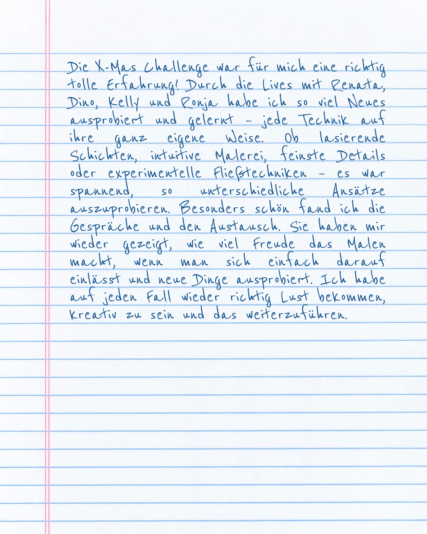 Die X-Mas Challenge war für mich eine richtig
tolle Erfahrung! Durch die Lives mit Renata,
Dino, Kelly und Ronja habe ich so viel Neues
ausprobiert und gelernt – jede Technik auf
ihre ganz eigene Weise. Ob lasierende
Schichten, intuitive Malerei, feinste Details
oder experimentelle Fließtechniken – es war
spannend, so unterschiedliche Ansätze
auszuprobieren. Besonders schön fand ich die
Gespräche und den Austausch. Sie haben mir
wieder gezeigt, wie viel Freude das Malen
macht, wenn man sich einfach darauf
einlässt und neue Dinge ausprobiert. Ich habe
auf jeden Fall wieder richtig Lust bekommen,
kreativ zu sein und das weiterzuführen.